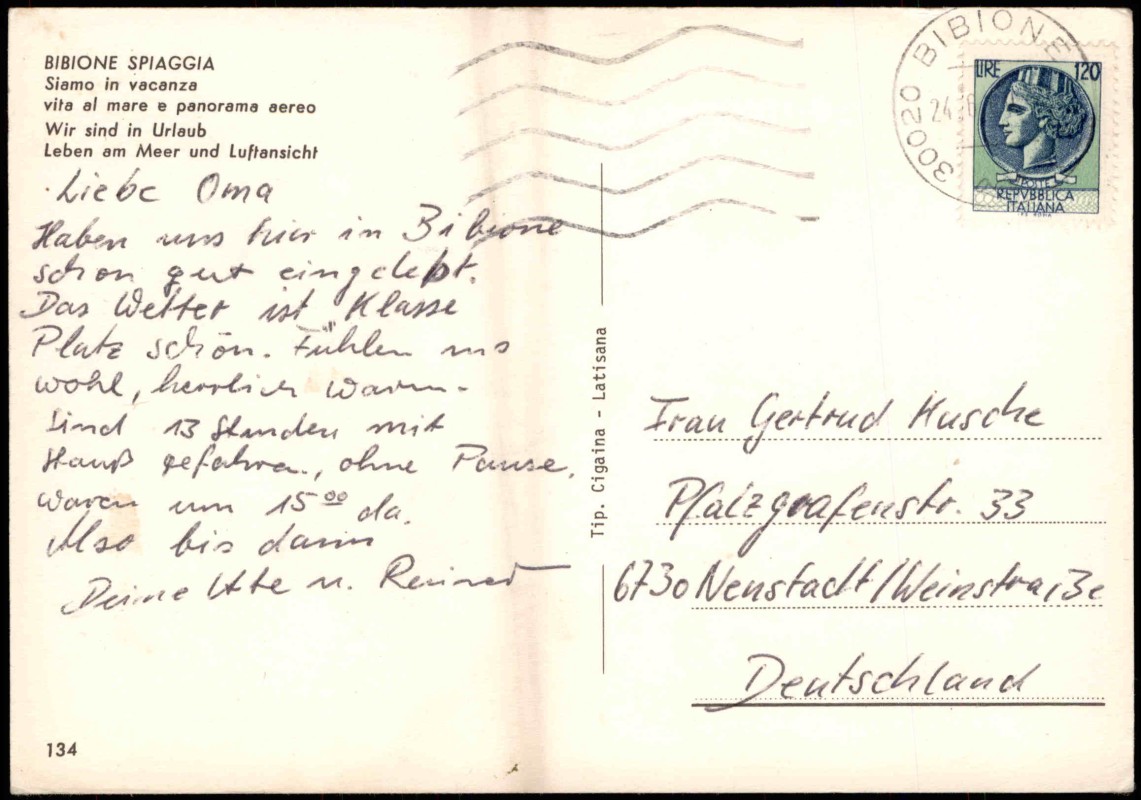 BIBIONE SPIAGGIA
Siamo in vacanza
vita al mare e panorama aereo
Wir sind in Urlaub
Leben am Meer und Luftansicht
Liebe Oma
Haben uns hier in Bibione
schon gut eingelebt.
Das Wetter ist Klasse
Platz schön. Fühlen uns
wohl, herrlich warm.
Sind 13 Stunden mit
gefahren, ohne Pause,
waren um 15⁰⁰ da.
Also bis dann
Deine Ute u.
134
Tip. Cigaina - Latisana
30020 BIBIONE
24
LIRE 120
POSTE
REPVBBLICA
ITALIANA
Frau Gertrud Husche
Pfalzgrafenstr. 33
6730 Neustadt/Weinstraße
Deutschland